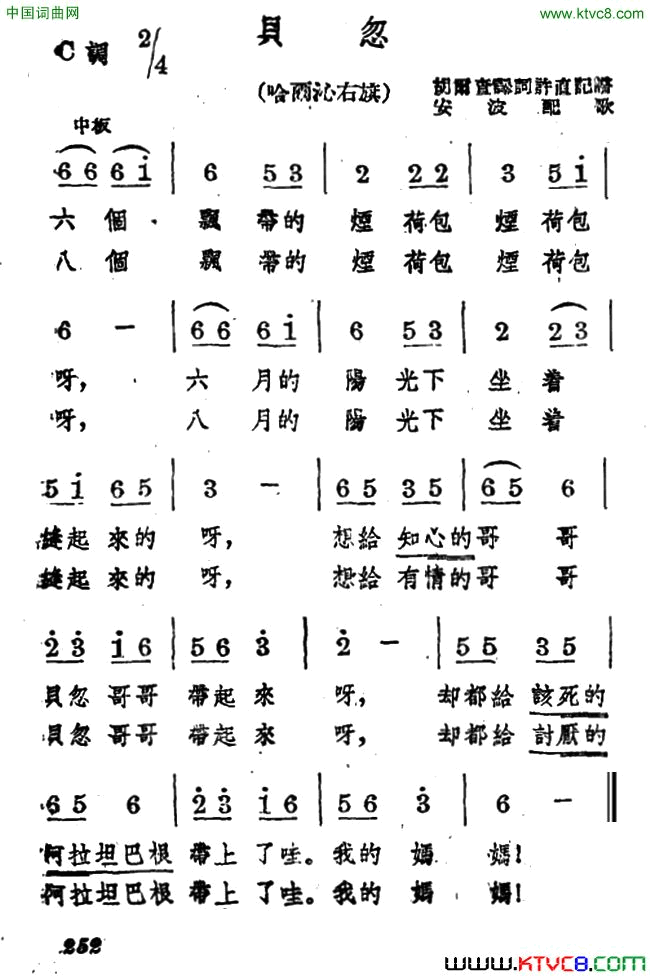 中国词曲网
www.ktvc8.com
貝忽
C調 2/4
(哈爾沁右旗)
胡爾查譯詞 許直記譜
安波配歌
中板
6 6 6 i | 6 5 3 | 2 2 2 | 3 5 i |
六個飄帶的煙荷包煙荷包
八個飄帶的煙荷包煙荷包
6 — | 6 6 6 i | 6 5 3 | 2 2 3 |
呀，六月的陽光下坐着
呀，八月的陽光下坐着
5 i 6 5 | 3 — | 6 5 3 5 | 6 5 6 |
縫起來的呀，想給知心的哥哥
縫起來的呀，想給有情的哥哥
2̇ 3̇ i 6 | 5 6 3̇ | 2̇ — | 5 5 3 5 |
貝忽哥哥帶起來呀，却都給該死的
貝忽哥哥帶起來呀，却都給討厭的
6 5 6 | 2̇ 3̇ i 6 | 5 6 3̇ | 6 — ‖
阿拉坦巴根帶上了哇。我的媽媽！
阿拉坦巴根帶上了哇。我的媽媽！
252
www.KTVC8.com